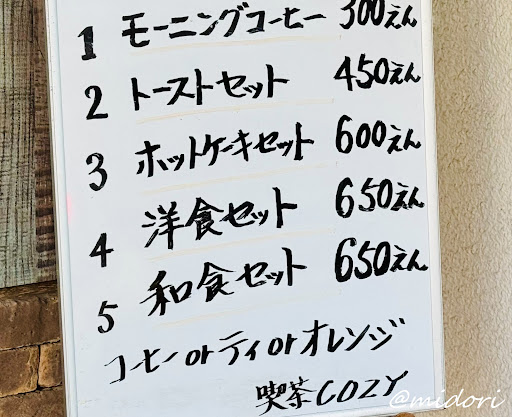 1 モーニングコーヒー 300えん
2 トーストセット 450えん
3 ホットケーキセット 600えん
4 洋食セット 650えん
5 和食セット 650えん
コーヒー or ティ or オレンジ
喫茶COZY
@midori